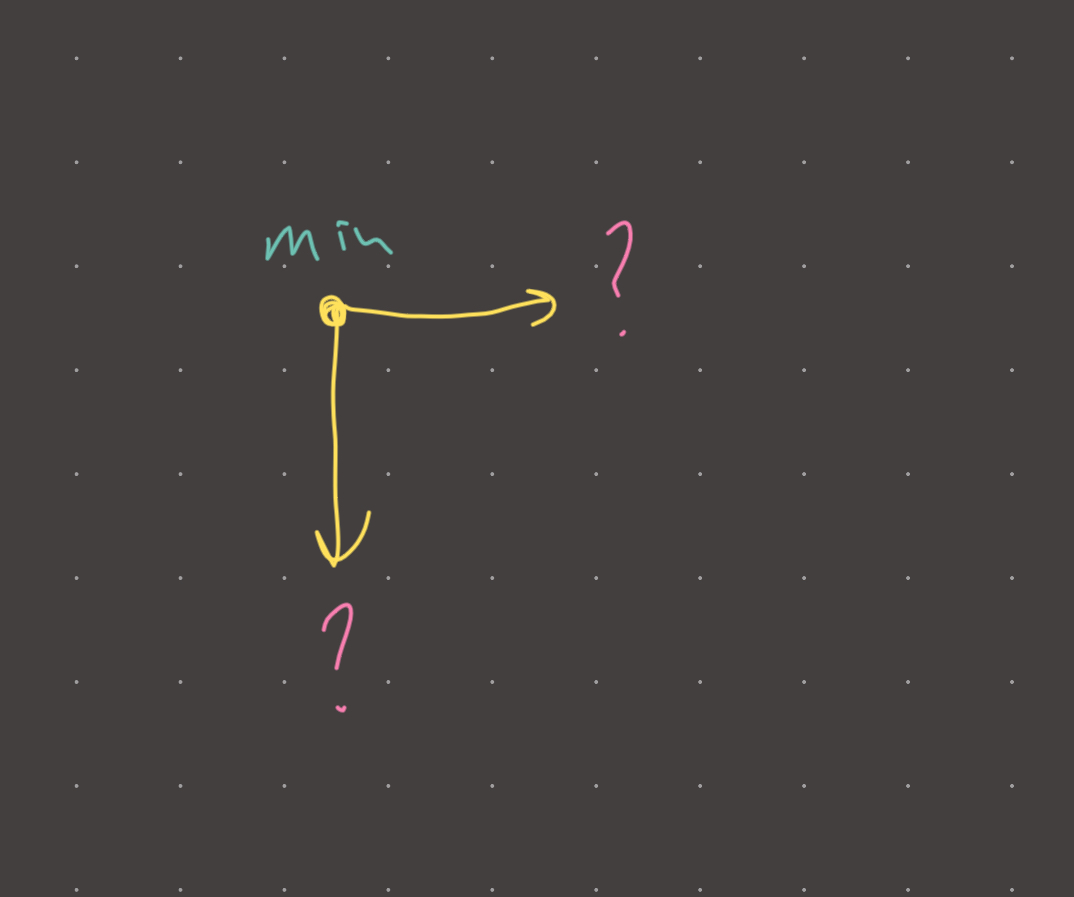 min
?
?